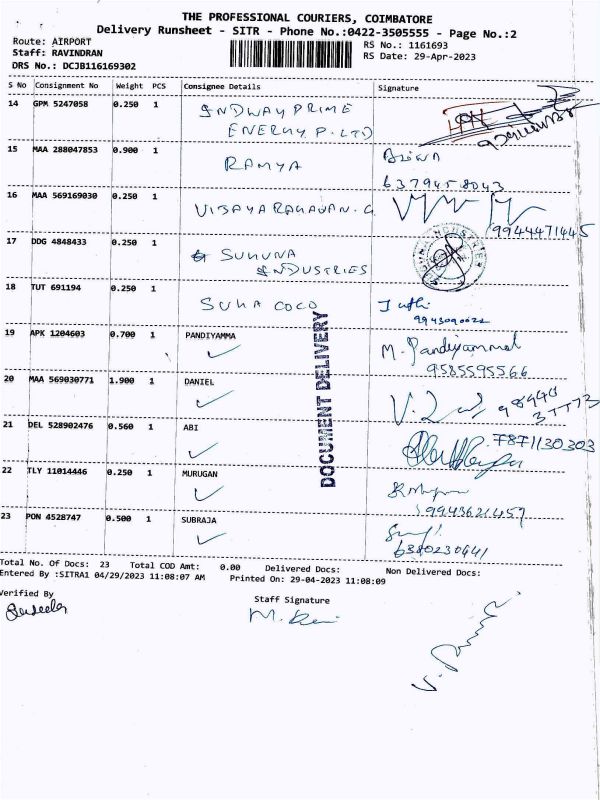 THE PROFESSIONAL COURIERS, COIMBATORE
Delivery Runsheet - SITR - Phone No.:0422-3505555 - Page No.:2
Route: AIRPORT
Staff: RAVINDRAN
DRS No.: DCJB116169302
RS No.: 1161693
RS Date: 29-Apr-2023
S No Consignment No Weight PCS Consignee Details Signature
14 GPM 5247058 0.250 1 INDWAY PRIME
ENERGY P. LTD
15 MAA 288047853 0.900 1 RAMYA
6379458043
16 MAA 569169030 0.250 1 VIJAYARAGAVAN. G
9944471445
17 DDG 4848433 0.250 1 SUGUNA
INDUSTRIES
18 TUT 691194 0.250 1 SUKA COCO
19 APK 1204603 0.700 1 PANDIYAMMA M. Pandiyammal
9585595566
20 MAA 569030771 1.900 1 DANIEL
21 DEL 528902476 0.560 1 ABI 7871130303
22 TLY 11014446 0.250 1 MURUGAN
9943621457
23 PON 4528747 0.500 1 SUBRAJA
6380230641
DOCUMENT DELIVERY
Total No. Of Docs: 23 Total COD Amt: 0.00 Delivered Docs: Non Delivered Docs:
Entered By :SITRA1 04/29/2023 11:08:07 AM Printed On: 29-04-2023 11:08:09
Verified By
Staff Signature